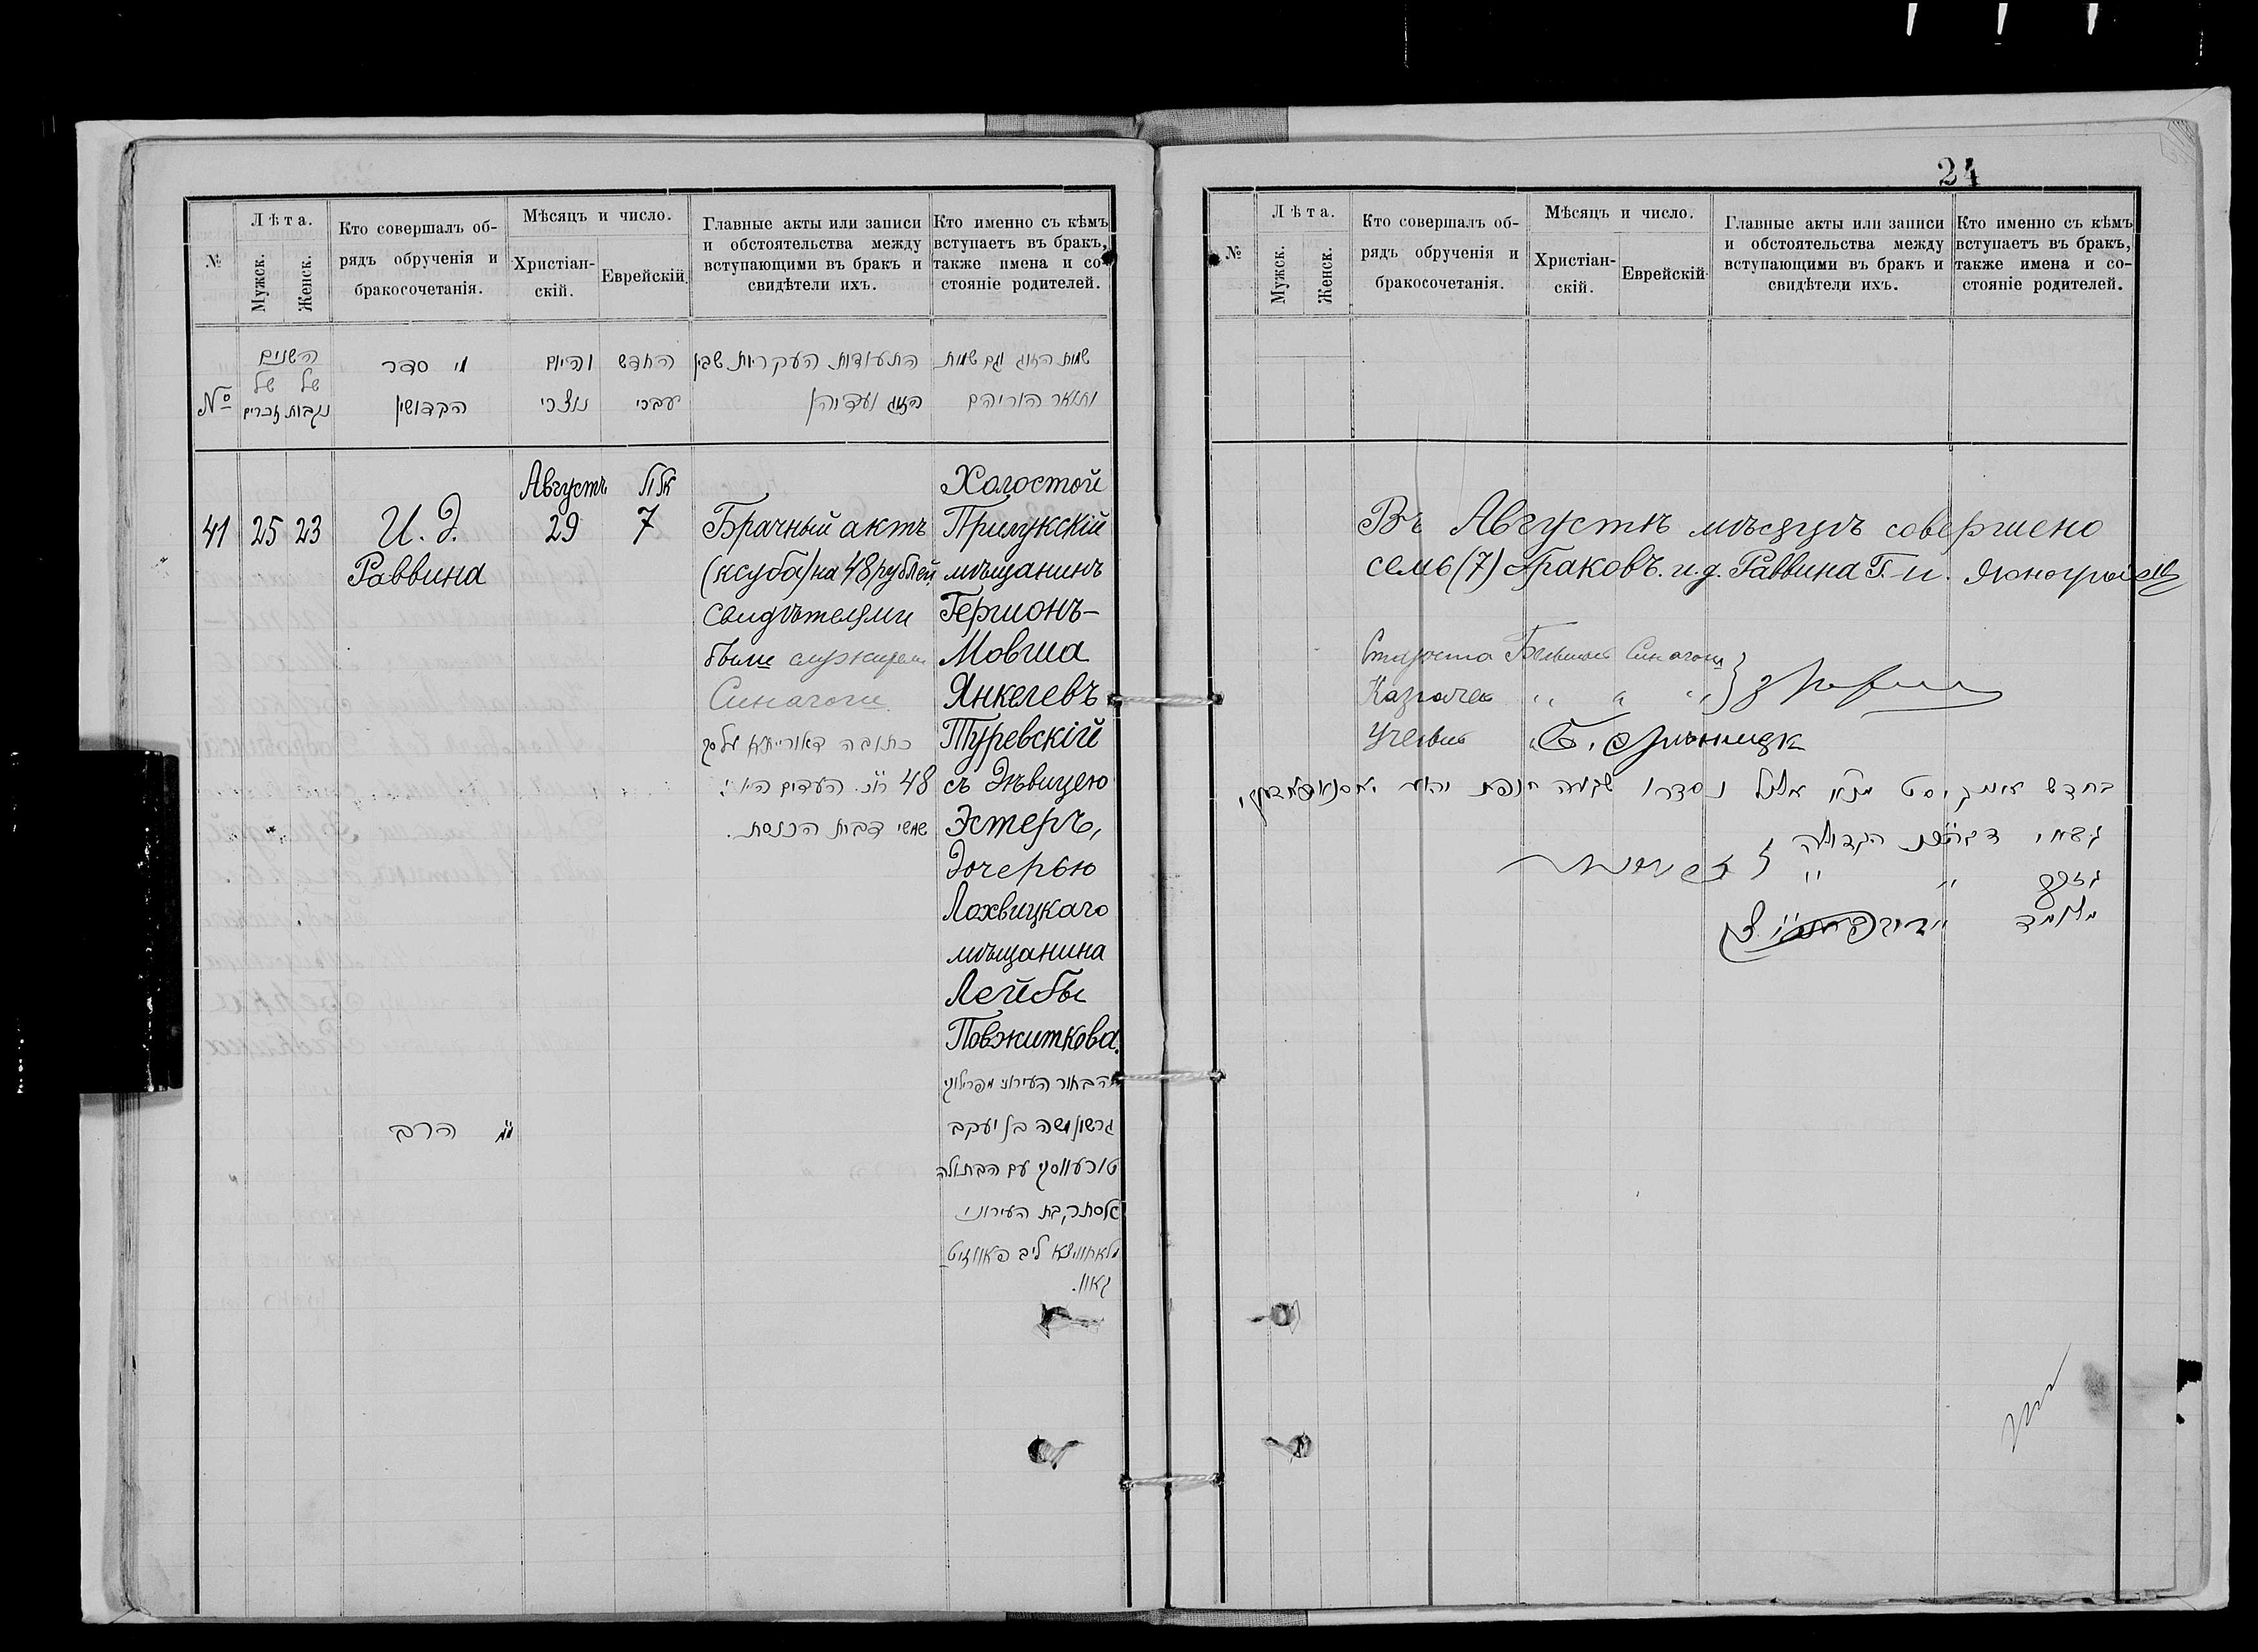 24
№
Лѣта.
Мужск.
Женск.
Кто совершалъ об-
рядъ обрученія и
бракосочетанія.
Мѣсяцъ и число.
Христіан-
скій.
Еврейскій.
Главные акты или записи
и обстоятельства между
вступающими въ бракъ и
свидѣтели ихъ.
Кто именно съ кѣмъ
вступаетъ въ бракъ,
также имена и со-
стояніе родителей.
№
השנים
של של
נקבות זכרים
מי סדר
הקדושין
והיום החדש
נוצרי עברי
התעודות העקריות שבין
הזוג ועדיהן
שמות הזוג וגם שמות
ותואר הוריהם
41
25
23
И. Д.
Раввина
Августъ
29
אלול
7
Брачный актъ
(ксуба) на 48 рублей
свидѣтелями
были служители
Синагоги
כתובה דאורייתא על סך
48 רו״כ העדים היו
שמשי דבית הכנסת.
Холостой
Прилукскій
мѣщанинъ
Гершонъ-
Мовша
Янкелевъ
Туревскій
съ Дѣвицею
Эстеръ,
Дочерью
Лохвицкаго
мѣщанина
Лейбы
Повжиткова.
הבחור העירוני מפרילוקי
גרשון משה בן יעקב
טורעווסקי עם הבתולה
אסתר בת העירוני
מלאחוויצא ליב פאווזיט
קאוו.
מ״מ הרב
№
Лѣта.
Мужск.
Женск.
Кто совершалъ об-
рядъ обрученія и
бракосочетанія.
Мѣсяцъ и число.
Христіан-
скій.
Еврейскій
Главные акты или записи
и обстоятельства между
вступающими въ бракъ и
свидѣтели ихъ.
Кто именно съ кѣмъ
вступаетъ въ бракъ,
также имена и со-
стояніе родителей.
Въ Августѣ мѣсяцѣ совершено
семь (7) браковъ. и. д. Раввина
Староста Большой Синагоги
Казначей " " "
Ученый "
בחדש אויגוסט אלול נסדרו שבעה חופות
הגדולה
" "